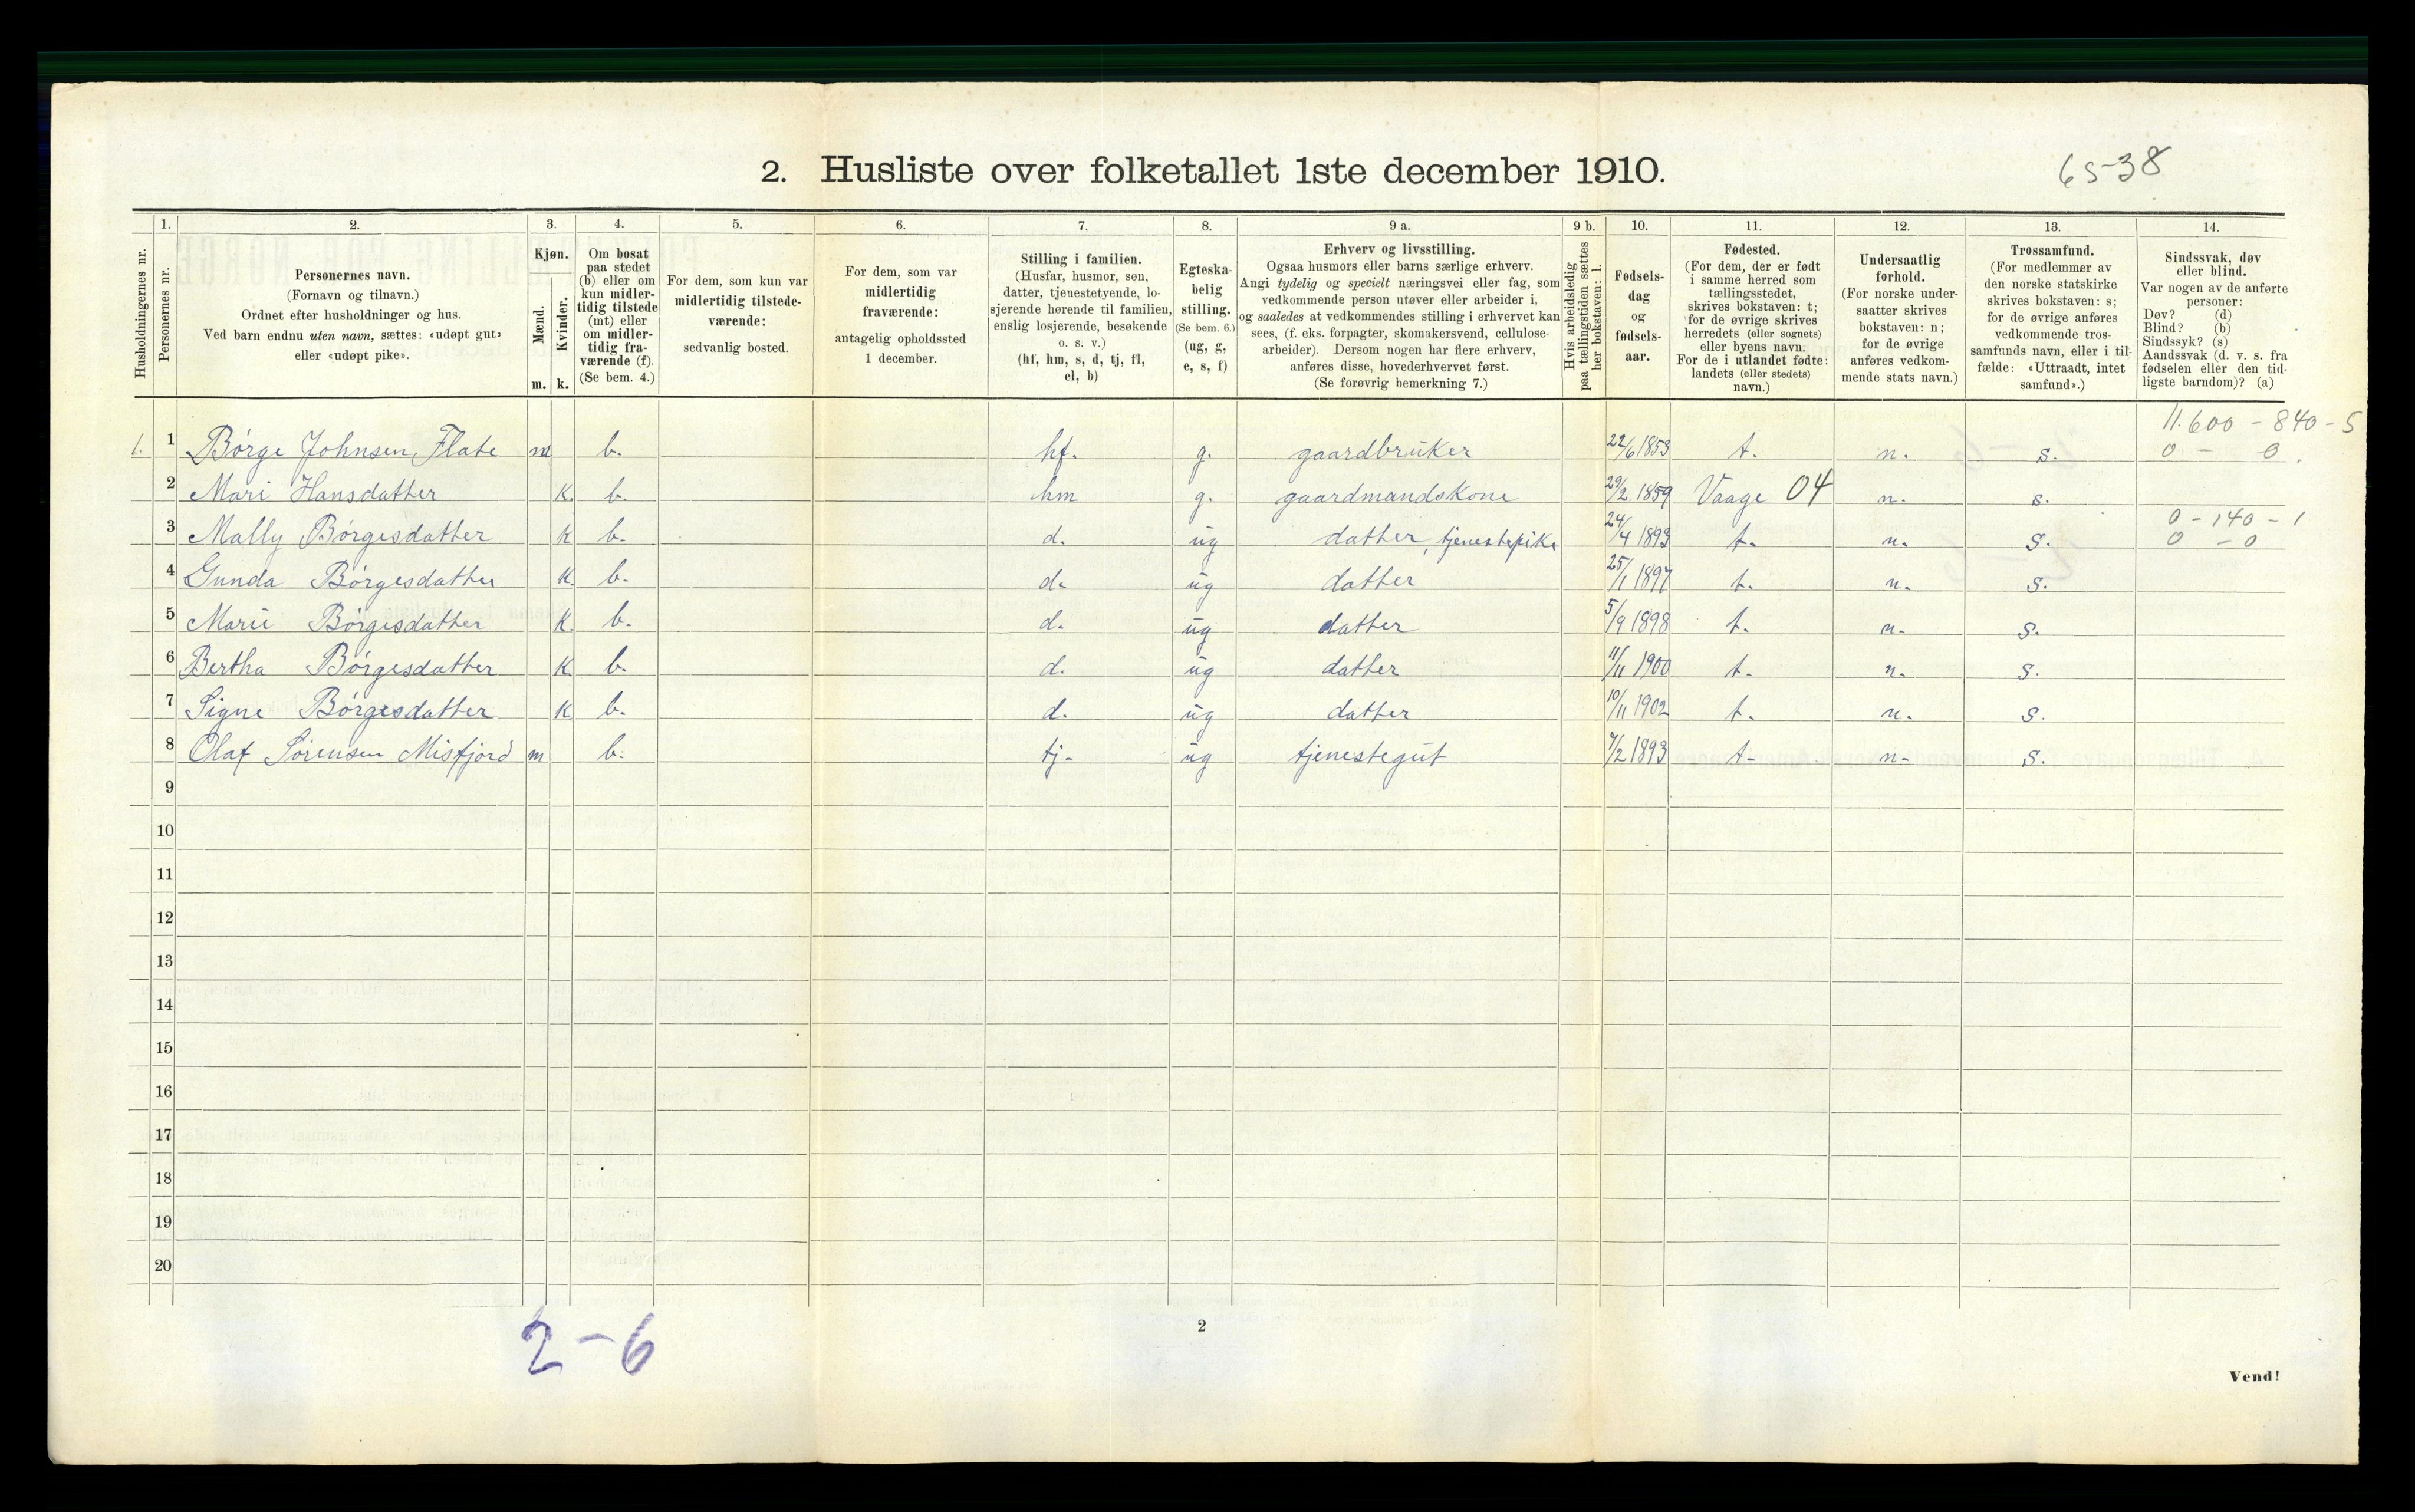 2. Husliste over folketallet 1ste december 1910.
65-38
1. 2. 3. 4. 5. 6. 7. 8. 9 a. 9 b. 10. 11. 12. 13. 14.
Husholdningernes nr.
Personernes nr.
Personernes navn.
(Fornavn og tilnavn.)
Ordnet efter husholdninger og hus.
Ved barn endnu uten navn, sættes: «udøpt gut»
eller «udøpt pike».
Kjøn.
Mænd.
Kvinder.
m. k.
Om bosat
paa stedet
(b) eller om
kun midler-
tidig tilstede
(mt) eller
om midler-
tidig fra-
værende (f).
(Se bem. 4.)
For dem, som kun var
midlertidig tilstede-
værende:
sedvanlig bosted.
For dem, som var
midlertidig
fraværende:
antagelig opholdssted
1 december.
Stilling i familien.
(Husfar, husmor, søn,
datter, tjenestetyende, lo-
sjerende hørende til familien,
enslig losjerende, besøkende
o. s. v.)
(hf, hm, s, d, tj, fl,
el, b)
Egteska-
belig
stilling.
(Se bem. 6.)
(ug, g,
e, s, f)
Erhverv og livsstilling.
Ogsaa husmors eller barns særlige erhverv.
Angi tydelig og specielt næringsvei eller fag, som
vedkommende person utøver eller arbeider i,
og saaledes at vedkommendes stilling i erhvervet kan
sees, (f. eks. forpagter, skomakersvend, cellulose-
arbeider). Dersom nogen har flere erhverv,
anføres disse, hovederhvervet først.
(Se forøvrig bemerkning 7.)
Hvis arbeidsledig
paa tællingstiden sættes
her bokstaven: l.
Fødsels-
dag
og
fødsels-
aar.
Fødested.
(For dem, der er født
i samme herred som
tællingsstedet,
skrives bokstaven: t;
for de øvrige skrives
herredets (eller sognets)
eller byens navn.
For de i utlandet fødte:
landets (eller stedets)
navn.)
Undersaatlig
forhold.
(For norske under-
saatter skrives
bokstaven: n;
for de øvrige
anføres vedkom-
mende stats navn.)
Trossamfund.
(For medlemmer av
den norske statskirke
skrives bokstaven: s;
for de øvrige anføres
vedkommende tros-
samfunds navn, eller i til-
fælde: «Uttraadt, intet
samfund».)
Sindssvak, døv
eller blind.
Var nogen av de anførte
personer:
Døv? (d)
Blind? (b)
Sindssyk? (s)
Aandssvak (d. v. s. fra
fødselen eller den tid-
ligste barndom)? (a)
11.600 - 840 - 5
1. 1 Børge Johnsen Flate m b. hf. g. gaardbruker 22/6 1853 t. n. s. 0 - 0.
2 Mari Hansdatter k. b. hm g. gaardmandskone 29/2 1859 Vaage 04 n. s.
0 - 140 - 1
3 Mally Børgesdatter k b. d. ug datter, tjenestepike 24/4 1893 t. n. s. 0 - 0
4 Gunda Børgesdatter k b. d. ug datter 25/1 1897 t. n. s.
5 Marie Børgesdatter k. b. d. ug datter 5/9 1898 t. n. s.
6 Bertha Børgesdatter k b. d. ug datter 11/11 1900 t. n. s.
7 Signe Børgesdatter k b. d. ug datter 10/11 1902 t. n. s.
8 Olaf Sørensen Misfjord m b. tj- ug tjenestegut 7/2 1893 t- n- s.
9
10
11
12
13
14
15
16
17
18
19
20
2-6
2
Vend!